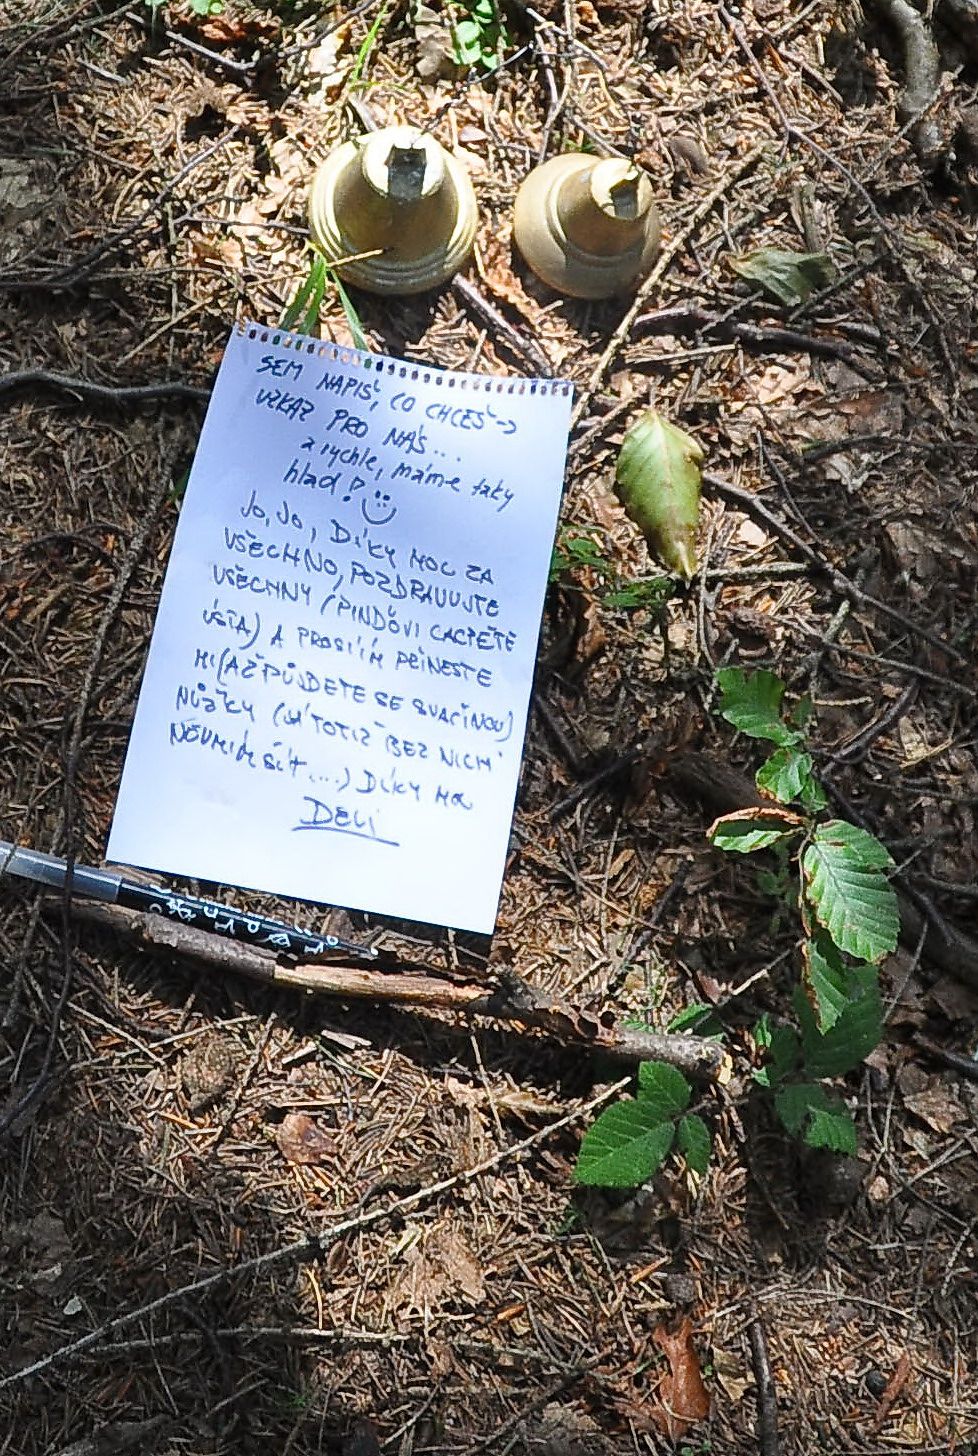 SEM NAPIŠ, CO CHCEŠ →
VZKAZ PRO NÁS...
a rychle, máme taky
hlad! :)
JO, JO, DÍKY MOC ZA
VŠECHNO, POZDRAVUJTE
VŠECHNY (PINĎOVI CACPĚTE
ÚSTA) A PROSÍÍM PŘINESTE
MI (AŽ PŮJDETE SE SVAČINOU)
NŮŽKY (JÁ TOTIŽ BEZ NICH
NEUMÍM ŠÍT....) DÍKY MOC
DELI